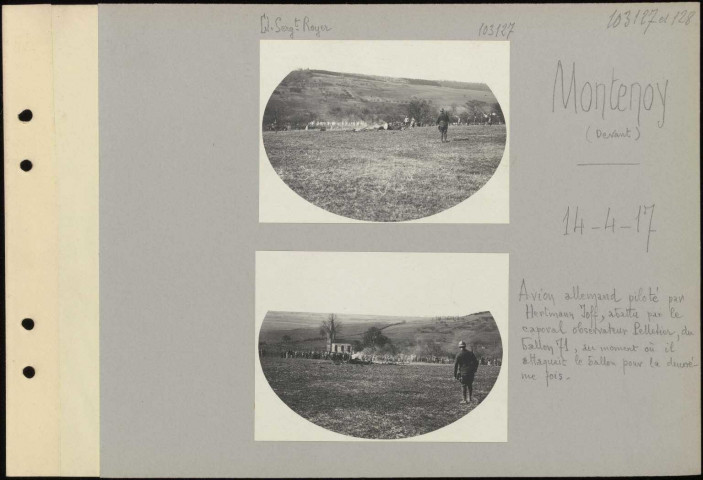 Q. Sergt Royer
103127
103127 et 128
Montenoy
(Devant)
14-4-17
Avion allemand piloté par
Hartmann Joff, abattu par le
caporal observateur Pelletier, du
ballon 71, au moment où il
attaquait le ballon pour la deuxiè-
me fois-